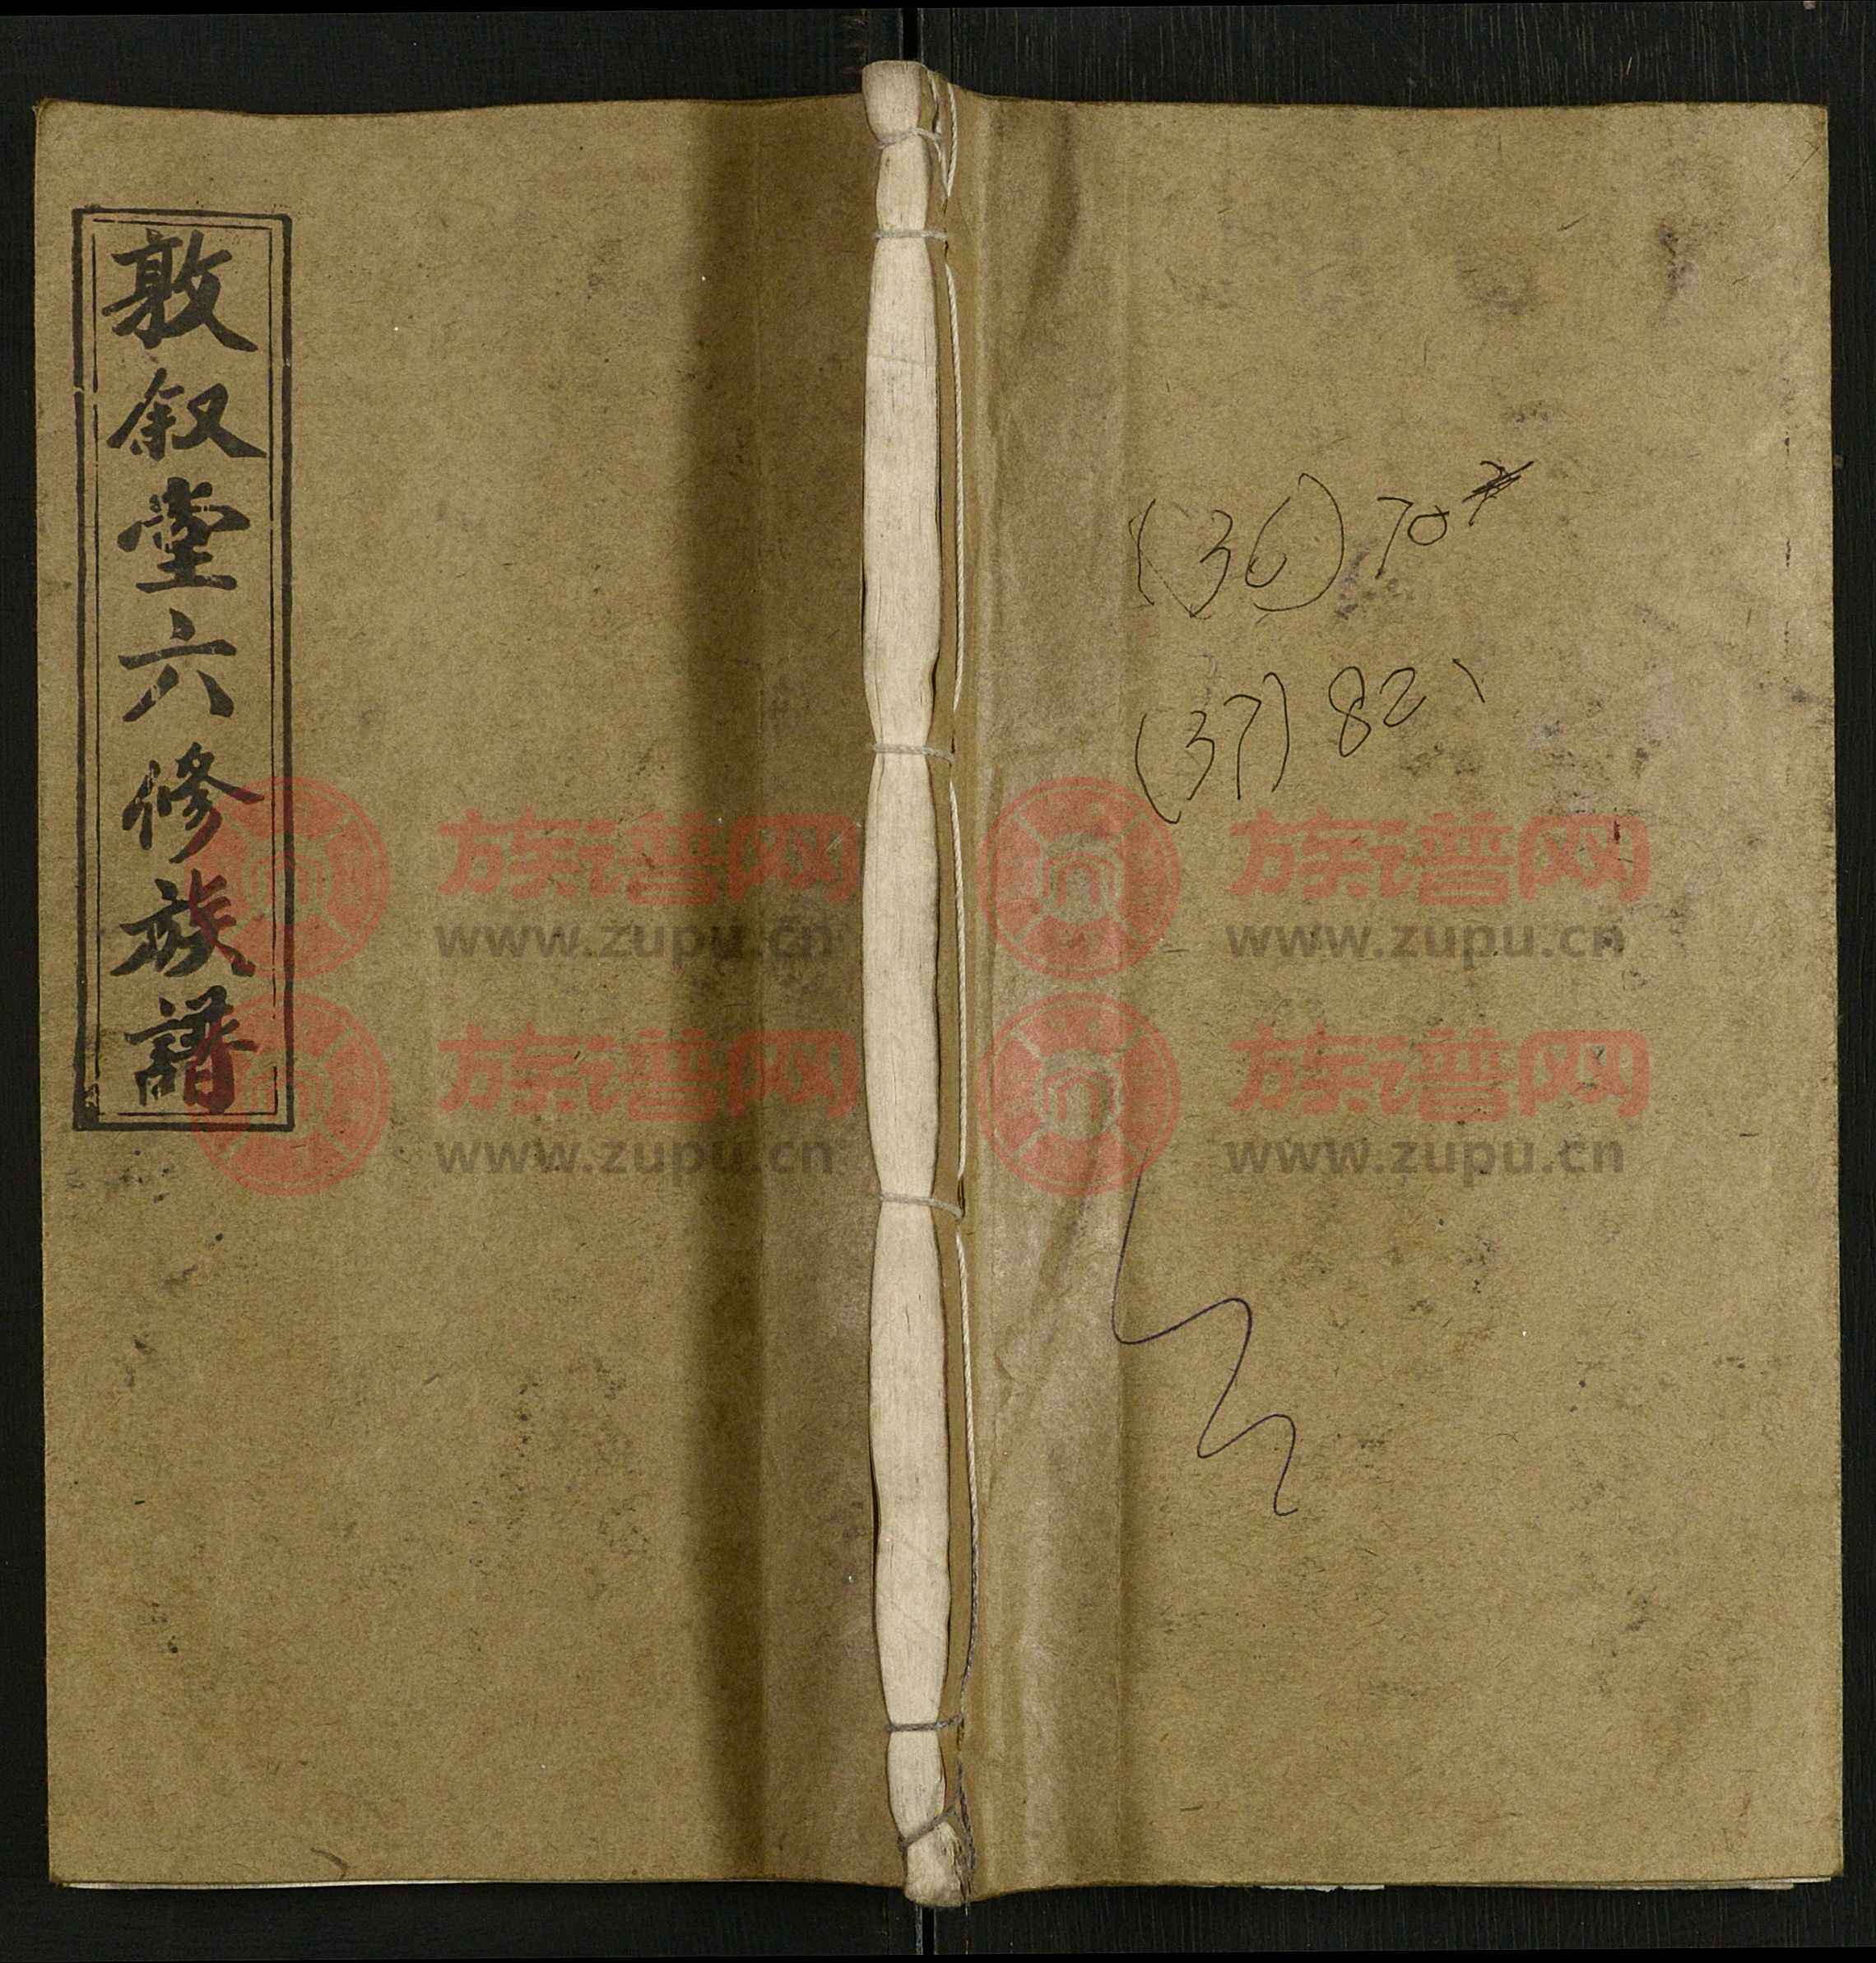 敦叙堂六修族譜
(36) 70
(37) 82、
族谱网 族谱网
www.zupu.cn www.zupu.cn
族谱网 族谱网
www.zupu.cn www.zupu.cn